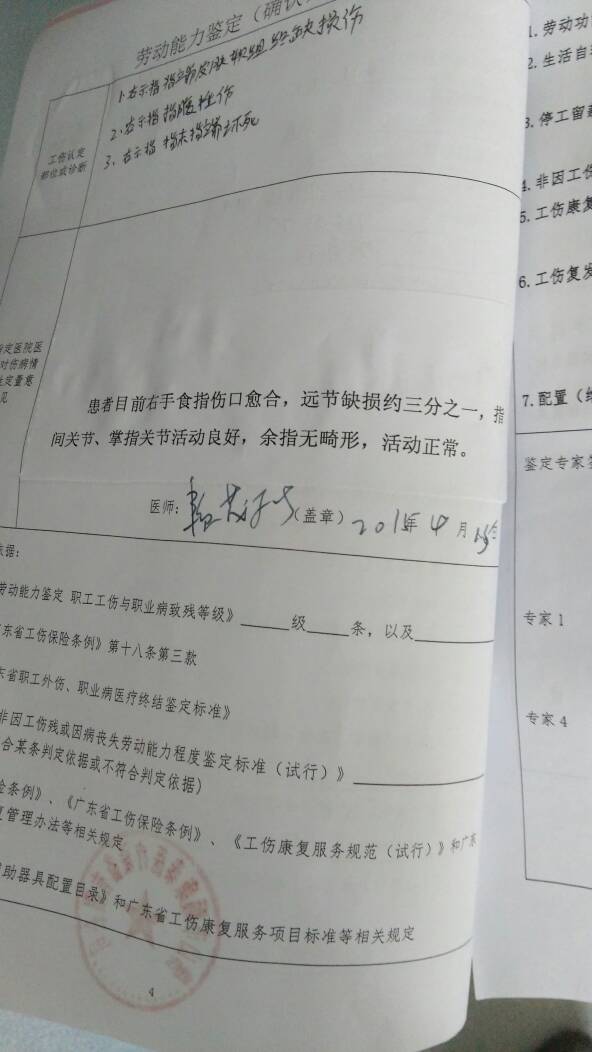 劳动能力鉴定（确认
1. 右示指指端皮肤软组织缺损伤
2、右示指指腹挫伤
3、右示指指末指端坏死
工伤认定
部位或诊断
指定医院医
对伤病情
定量意
见
患者目前右手食指伤口愈合，远节缺损约三分之一，指
间关节、掌指关节活动良好，余指无畸形，活动正常。
医师：
（盖章）
年4月
依据：
劳动能力鉴定 职工工伤与职业病致残等级》______级______条，以及
东省工伤保险条例》第十八条第三款
东省职工外伤、职业病医疗终结鉴定标准》
非因工伤残或因病丧失劳动能力程度鉴定标准（试行）》
合某条判定依据或不符合判定依据）
险条例》、《广东省工伤保险条例》、《工伤康复服务规范（试行）》和广东
管理办法等相关规定
助器具配置目录》和广东省工伤康复服务项目标准等相关规定
4
1.劳动功
2.生活自
3.停工留
4.非因工伤
5.工伤康复
6.工伤复发
7.配置（
鉴定专家
专家1
专家4